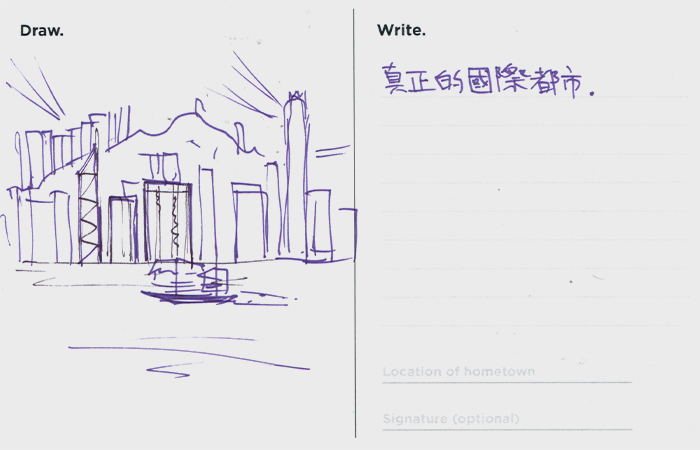 Draw.
Write.
真正的國際都市.
Location of hometown
Signature (optional)